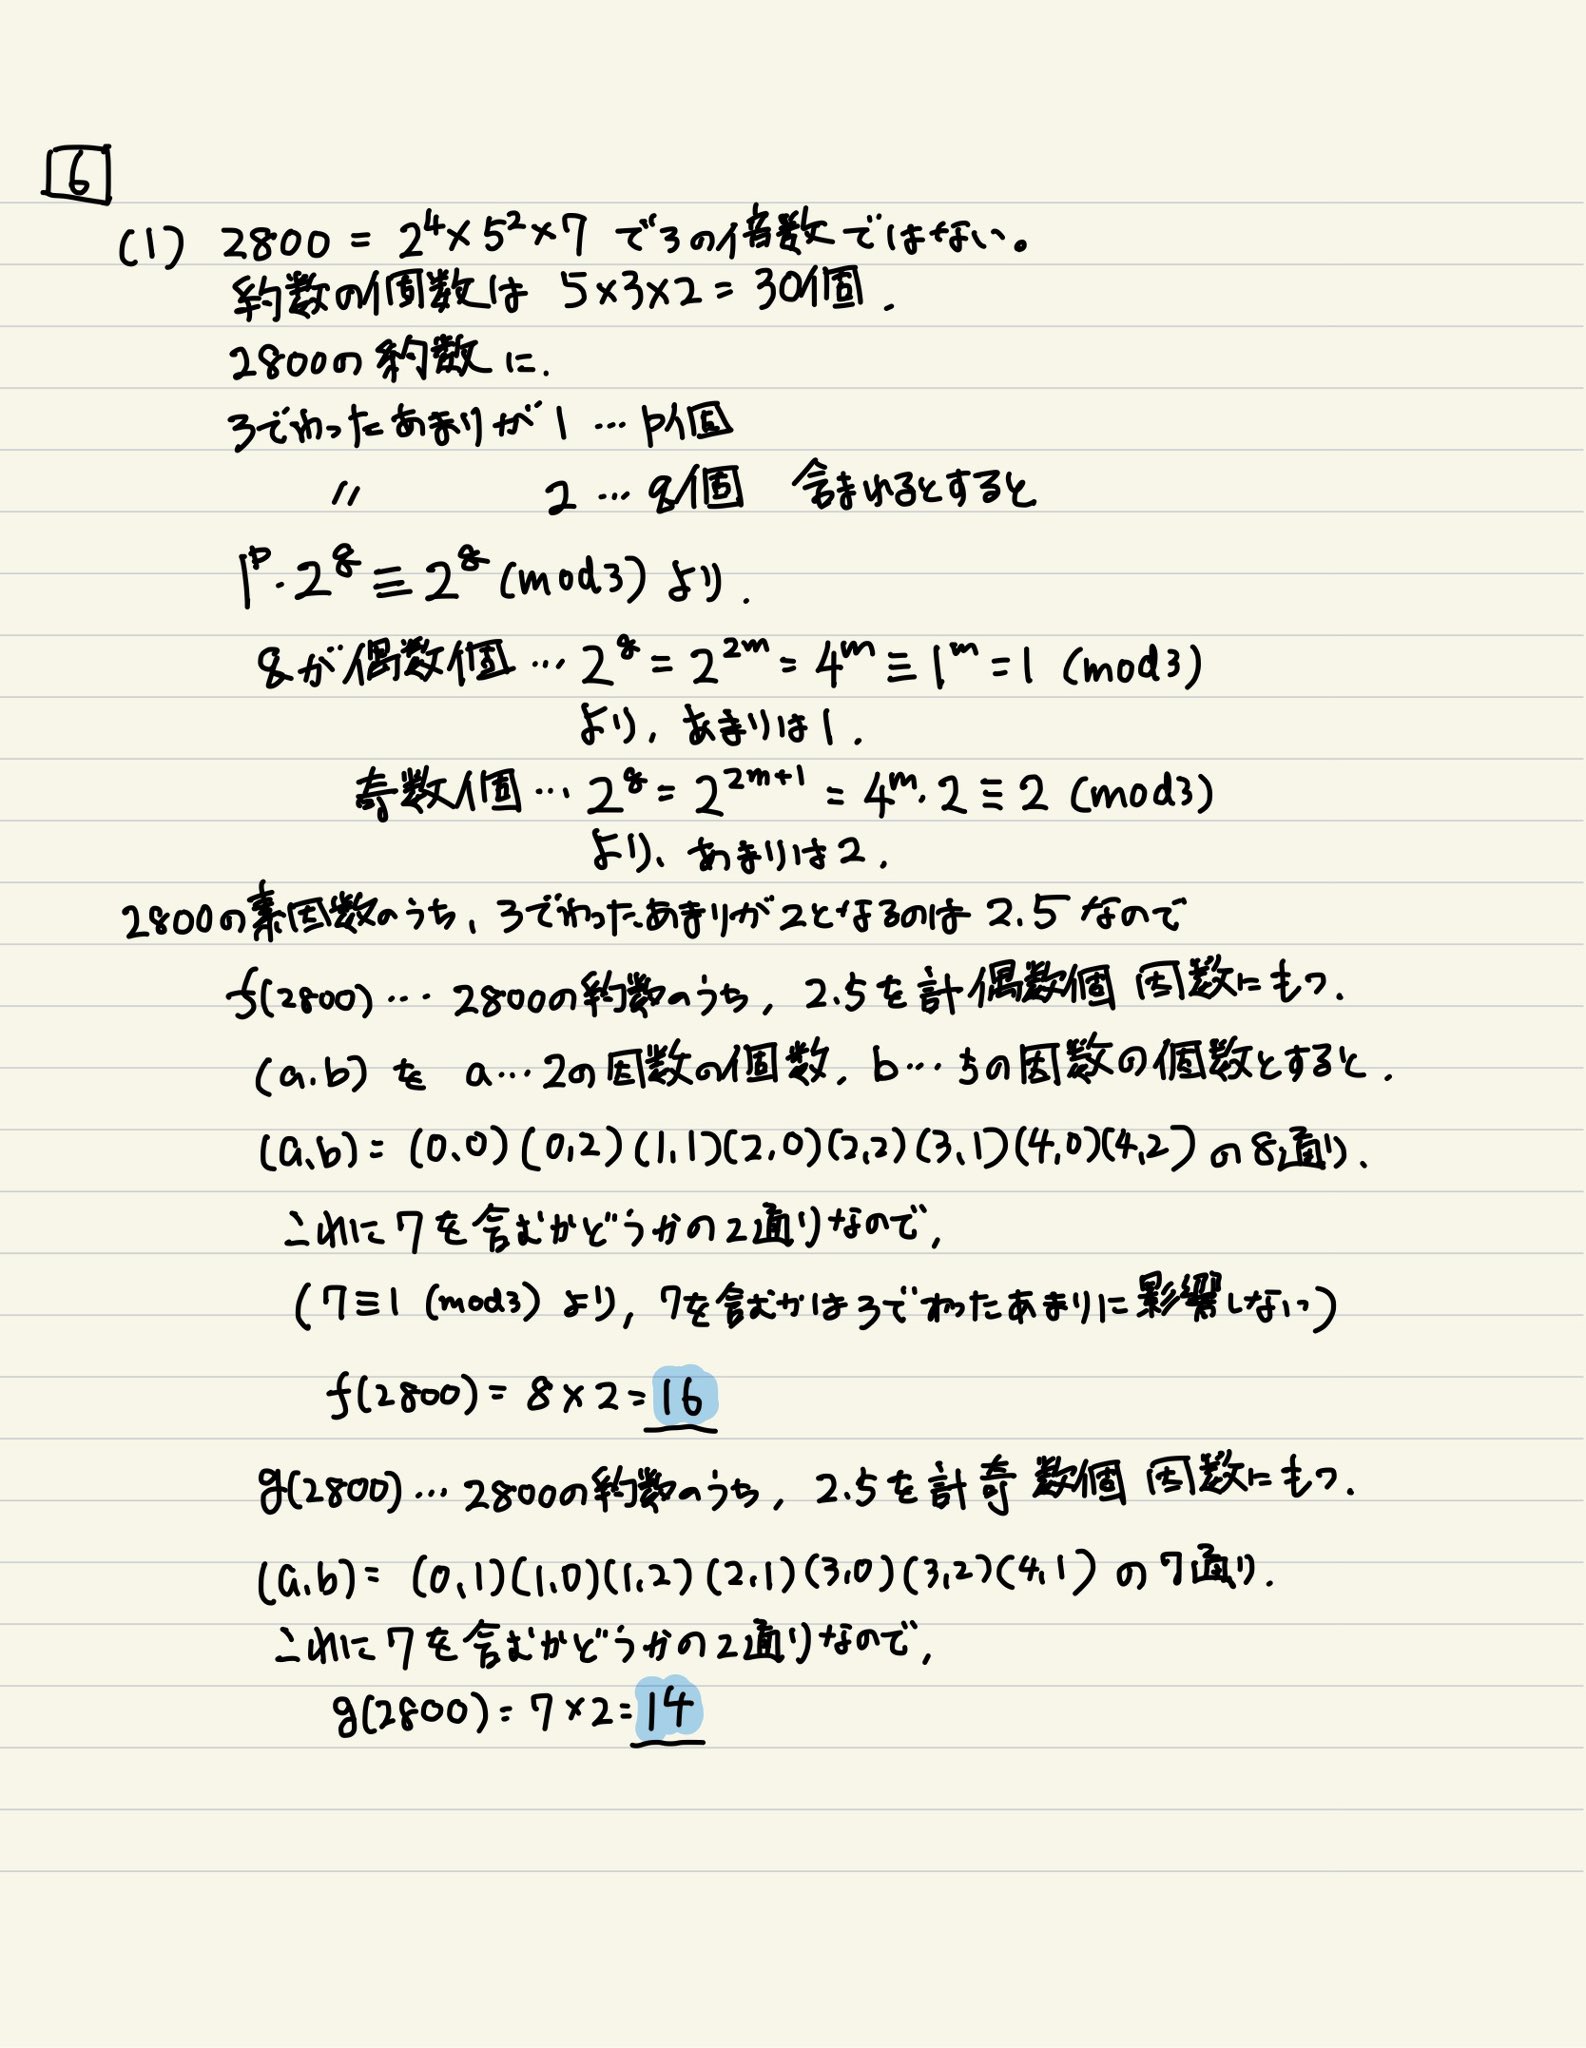 6
(1) 2800 = 2⁴×5²×7 で3の倍数ではない。
約数の個数は 5×3×2=30個.
2800の約数に.
3でわったあまりが1…p個
〃 2…q個 含まれるとすると
1ᵖ・2^q≡2^q (mod3) より.
qが偶数個…2^q=2^2m=4^m≡1^m=1 (mod3)
より, あまりは1.
奇数個…2^q=2^2m+1=4^m・2≡2 (mod3)
より, あまりは2.
2800の素因数のうち, 3でわったあまりが2となるのは2.5なので
f(2800)…2800の約数のうち, 2.5を計偶数個 因数にもつ.
(a.b) を a…2の因数の個数. b…5の因数の個数とすると.
(a,b)= (0,0)(0,2)(1,1)(2,0)(2,2)(3,1)(4,0)(4,2) の8通り.
これに7を含むかどうかの2通りなので,
(7≡1 (mod3) より, 7を含むかは3でわったあまりに影響しない)
f(2800)=8×2=16
g(2800)…2800の約数のうち, 2.5を計奇数個 因数にもつ.
(a,b)= (0,1)(1,0)(1,2)(2,1)(3,0)(3,2)(4,1) の7通り.
これに7を含むかどうかの2通りなので,
g(2800)=7×2=14